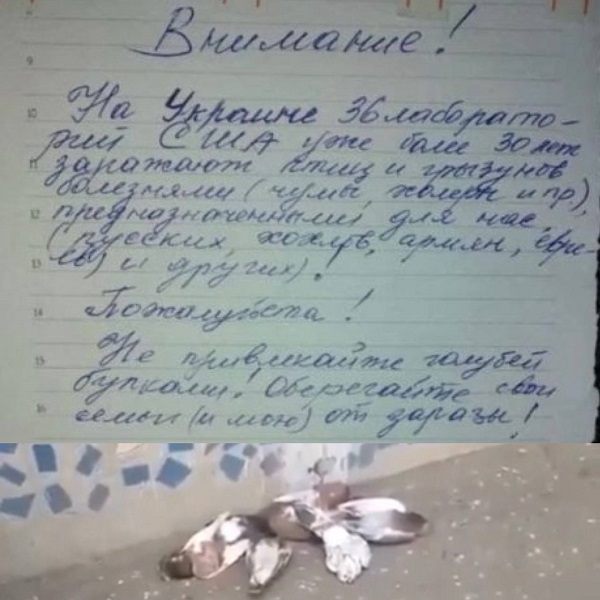 Внимание!
9
10 На Украине 36 лаборато-
рий США уже боле 30 лет
11 заражают птиц и грызунов
болезнями (чумы, холеры и пр),
12 предназначенными для нас,
(русских, хохлов, армян, евре-
13 ев) и других).
14 Пожалуйста!
15 Не привлекайте голубей
булками! Оберегайте свои
16 семьи (и мою) от заразы!